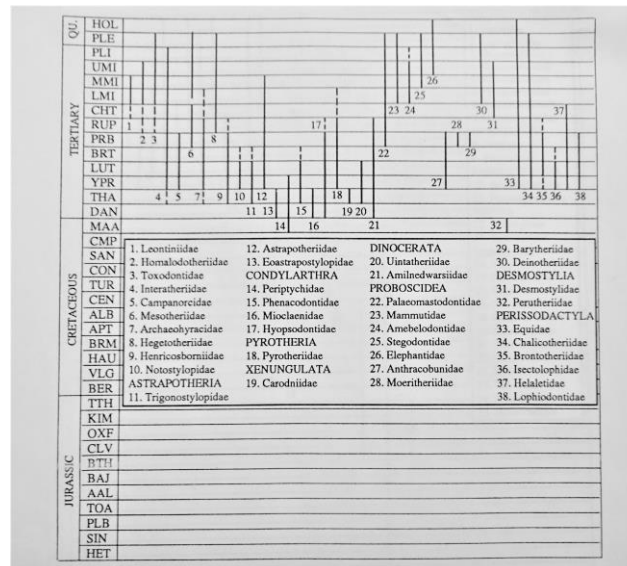 QU.
HOL
PLE
TERTIARY
PLI
UMI
MMI
LMI
CHT
RUP
PRB
BRT
LUT
YPR
THA
DAN
CRETACEOUS
MAA
CMP
SAN
CON
TUR
CEN
ALB
APT
BRM
HAU
VLG
BER
JURASSIC
TTH
KIM
OXF
CLV
BTH
BAJ
AAL
TOA
PLB
SIN
HET
26
25
23 24 30 37
1 17 31
2 3 8 28
6 22 29
5 27 33
4 7 9 10 12 18 34 35 36 38
11 13 15 19 20
14 16 21 32
1. Leontiniidae
2. Homalodotheriidae
3. Toxodontidae
4. Interatheriidae
5. Campanorcidae
6. Mesotheriidae
7. Archaeohyracidae
8. Hegetotheriidae
9. Henricosborniidae
10. Notostylopidae
ASTRAPOTHERIA
11. Trigonostylopidae
12. Astrapotheriidae
13. Eoastrapostylopidae
CONDYLARTHRA
14. Periptychidae
15. Phenacodontidae
16. Mioclaenidae
17. Hyopsodontidae
PYROTHERIA
18. Pyrotheriidae
XENUNGULATA
19. Carodniidae
DINOCERATA
20. Uintatheriidae
21. Amilnedwarsiidae
PROBOSCIDEA
22. Palaeomastodontidae
23. Mammutidae
24. Amebelodontidae
25. Stegodontidae
26. Elephantidae
27. Anthracobunidae
28. Moeritheriidae
29. Barytheriidae
30. Deinotheriidae
DESMOSTYLIA
31. Desmostylidae
32. Perutheriidae
PERISSODACTYLA
33. Equidae
34. Chalicotheriidae
35. Brontotheriidae
36. Isectolophidae
37. Helaletidae
38. Lophiodontidae